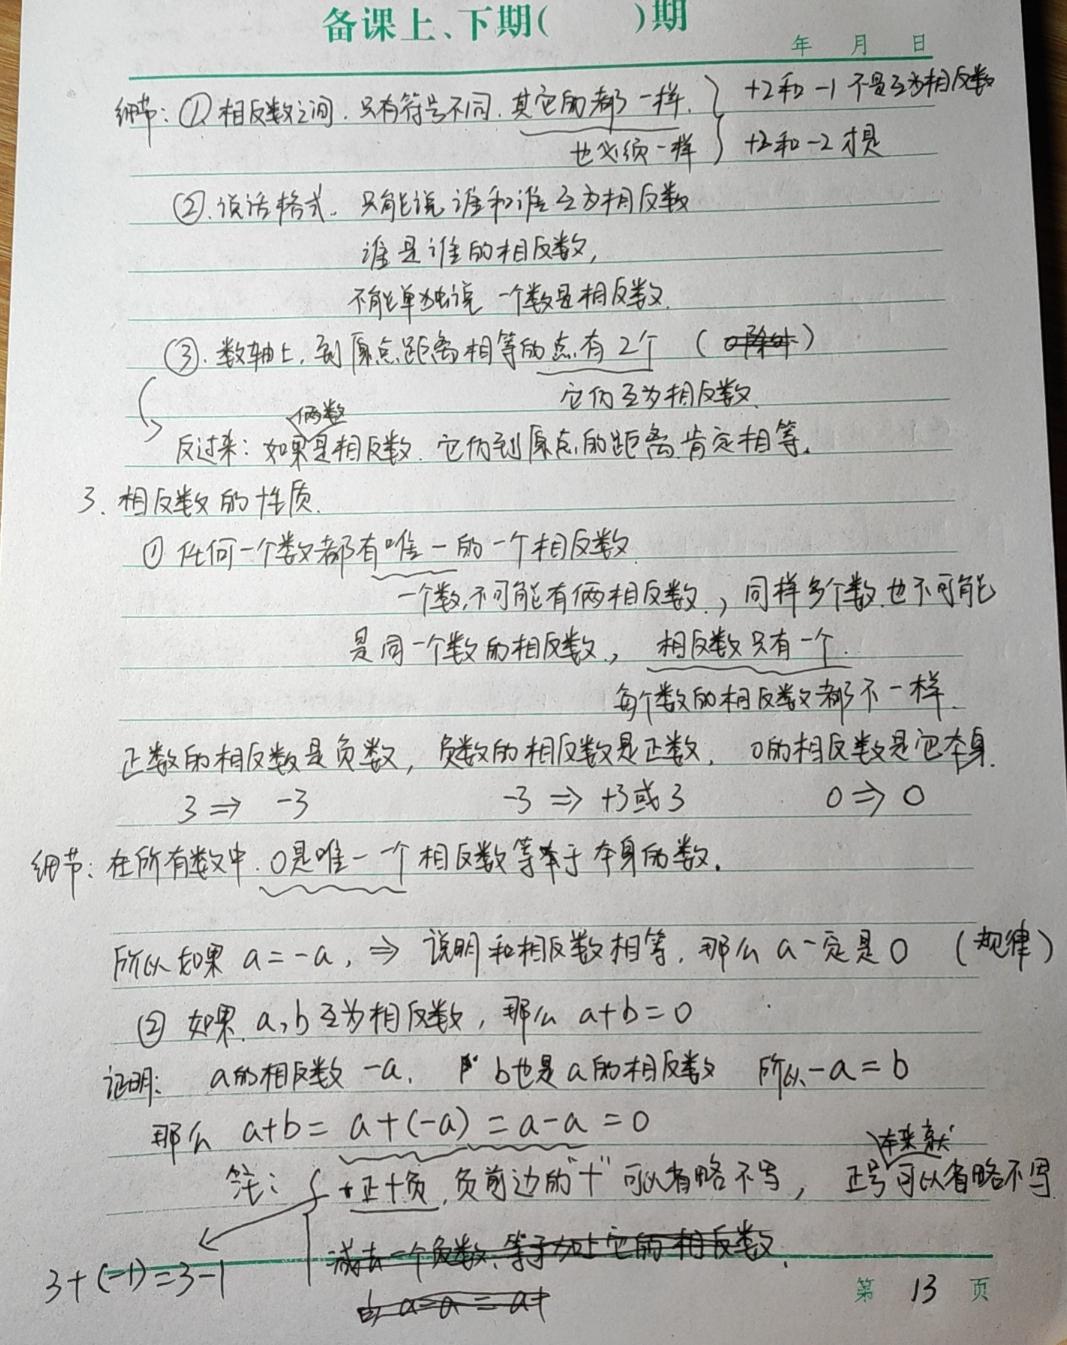 备课上、下期(　　)期
年 月 日
细节: ① 相反数之间, 只有符号不同, 其它的都一样, +2和-1 不是互为相反数
也必须一样 +2和-2才是
②. 说话格式. 只能说 谁和谁互为相反数
谁是谁的相反数,
不能单独说 一个数是相反数.
③. 数轴上, 到原点距离相等的点有2个 (0除外)
它们互为相反数.
俩数
反过来: 如果是相反数. 它们到原点的距离肯定相等.
3. 相反数的性质.
① 任何一个数都有唯一的一个相反数.
一个数,不可能有俩相反数., 同样多个数也不可能
是同一个数的相反数., 相反数只有一个.
每个数的相反数都不一样.
正数的相反数是负数, 负数的相反数是正数, 0的相反数是它本身.
3 ⇒ -3 -3 ⇒ +3或3 0 ⇒ 0
细节: 在所有数中. 0是唯一一个相反数等于本身的数.
所以如果 a=-a, ⇒ 说明和相反数相等, 那么 a一定是0 (规律)
② 如果. a,b互为相反数, 那么 a+b=0
证明: a的相反数 -a, b也是a的相反数 所以-a=b
那么 a+b= a+(-a) = a-a =0
本来就
注: 正+负, 负前边的"+"可以省略不写, 正号可以省略不写
减去一个负数, 等于加上它的相反数.
3+(-1)=3-1
a-a = a+
第 13 页